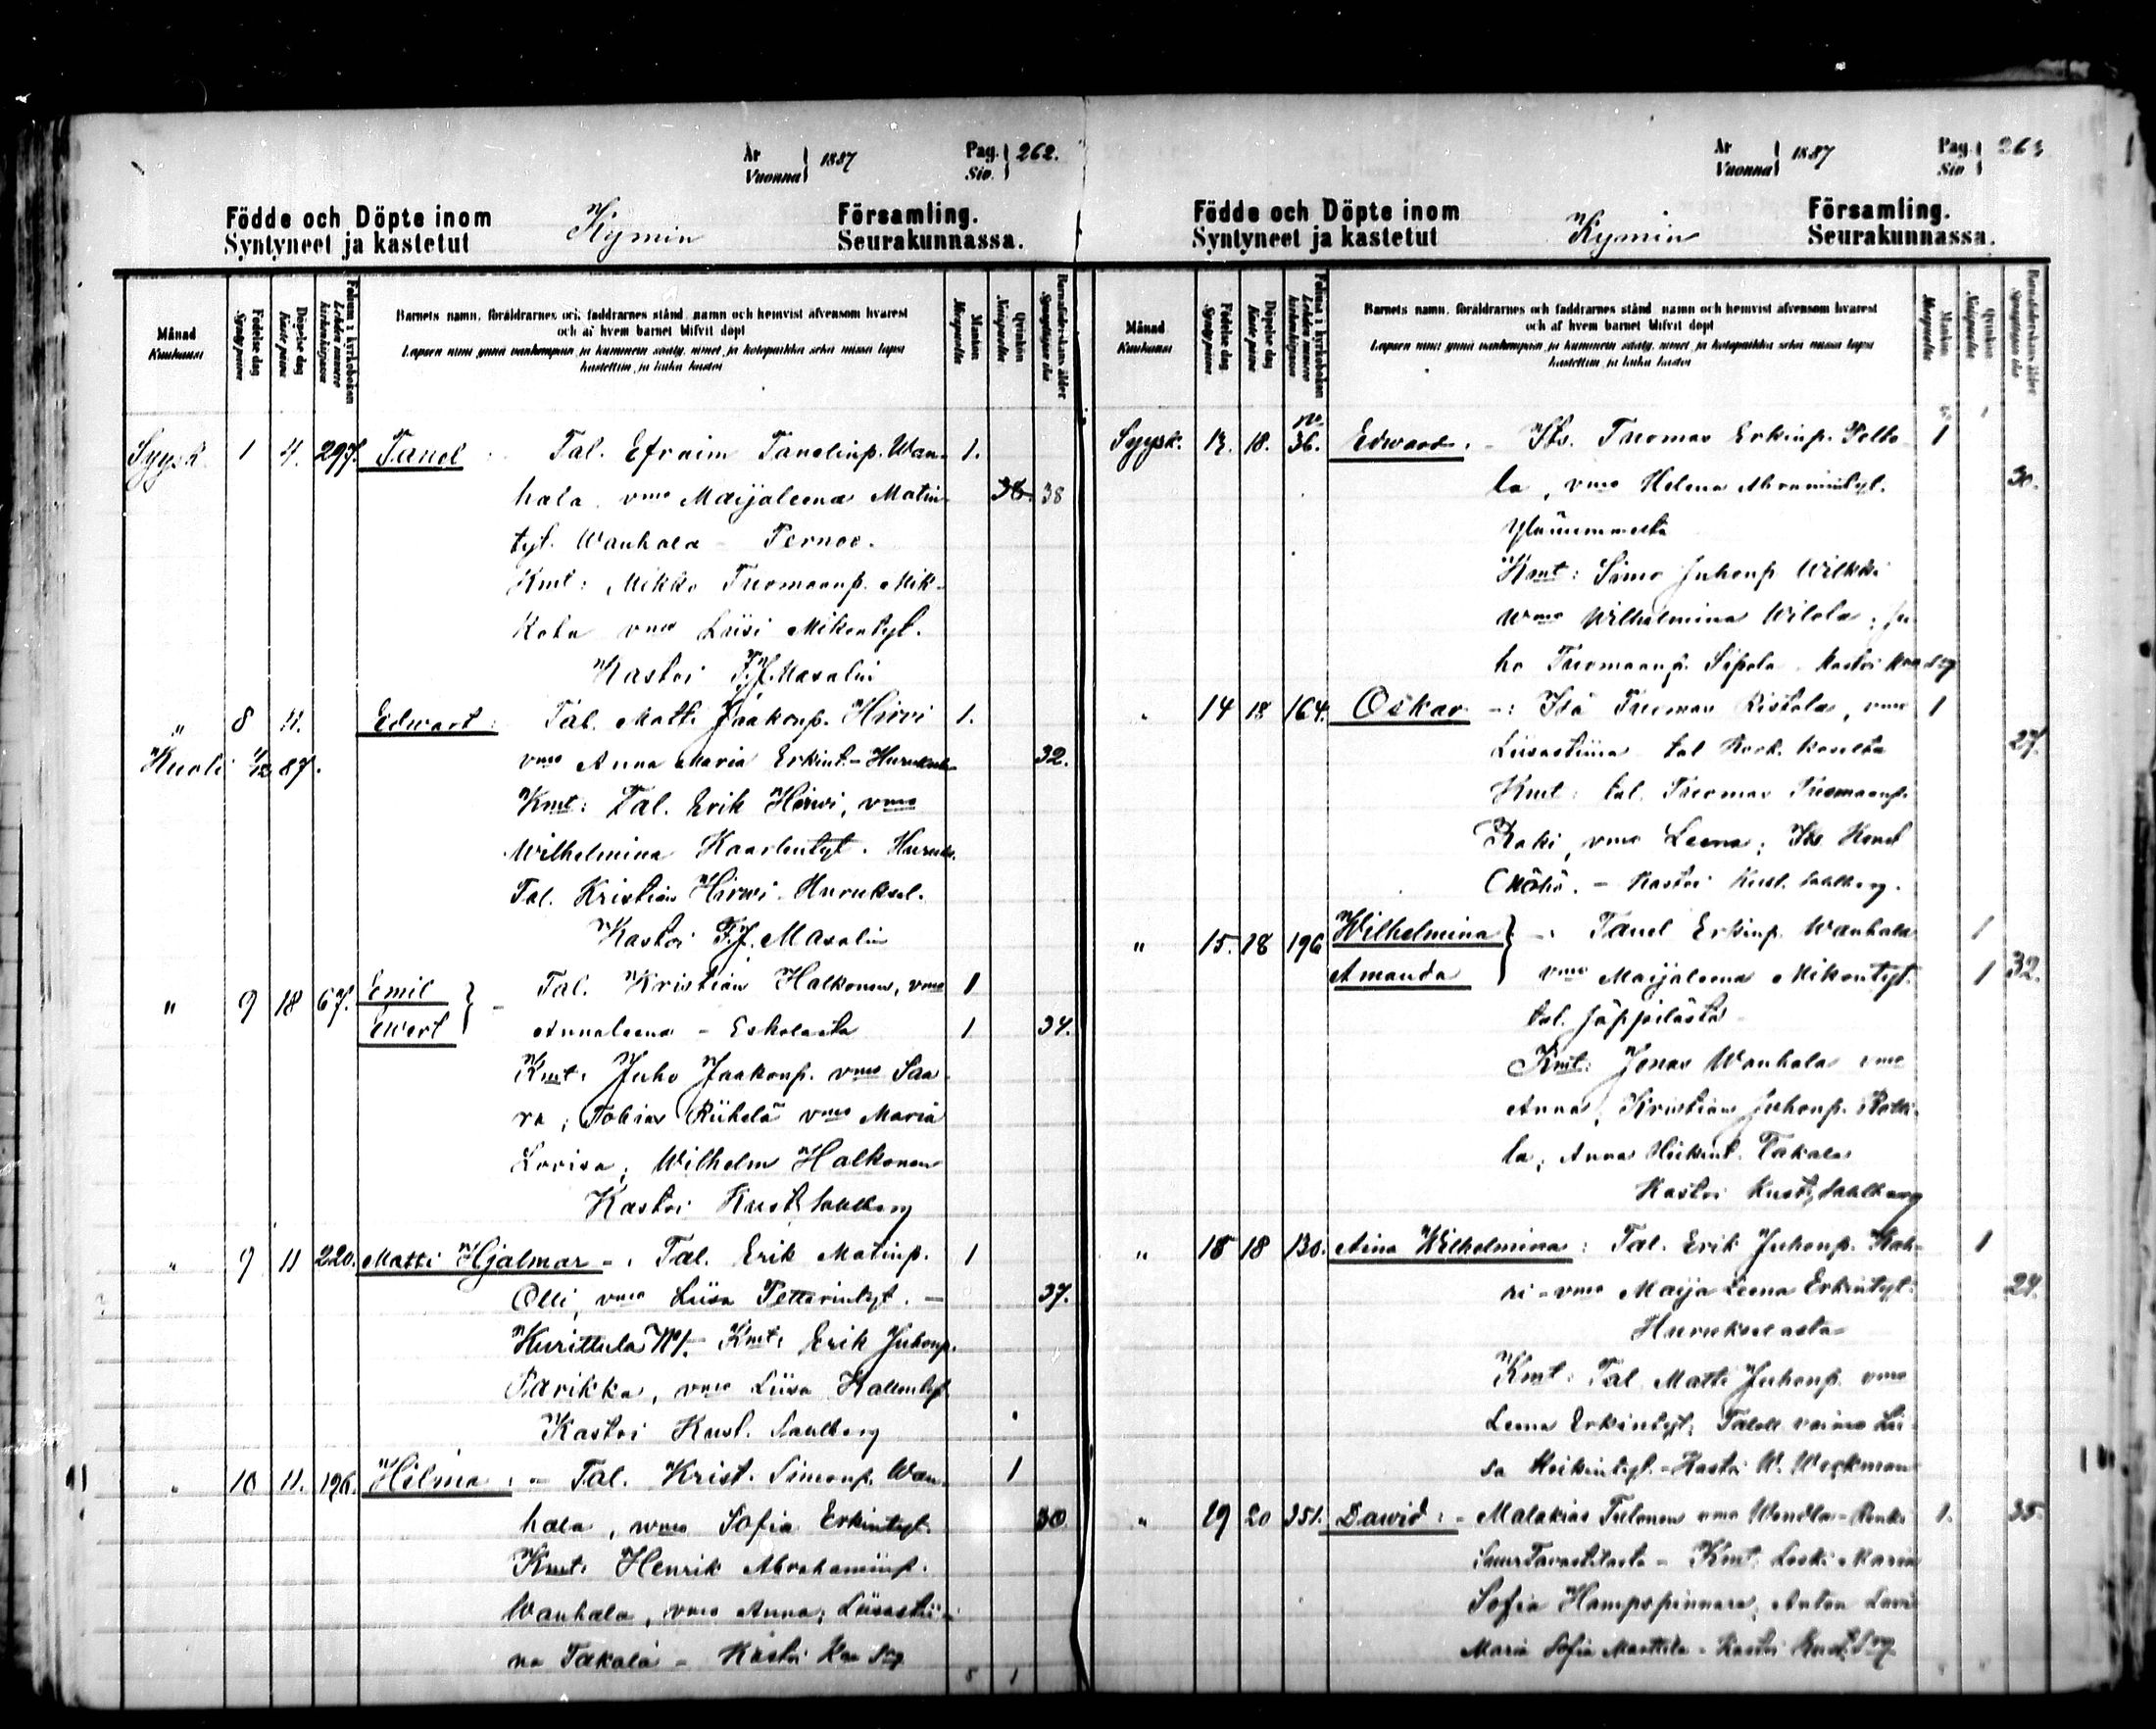 År
Vuonna } 1887
Pag.
Siv. } 262.
Födde och Döpte inom
Syntyneet ja kastetut
Kymin
Församling.
Seurakunnassa.
Månad
Kuukausi
Födelse dag
Synty päivä
Döpelse dag
Kaste päivä
Folium i kyrkoboken
Lehden numero kirkonkirjassa
Barnets namn, föräldrarnes och faddrarnes stånd, namn och hemvist äfvensom hvarest
och af hvem barnet blifvit döpt
Lapsen nimi ynnä vanhempain ja kummein sääty, nimet ja kotopaikka sekä missä lapsi
kastettiin ja kuka kastoi
Mankön
Miespuolta
Qvinkön
Naispuolta
Syysk. 1 4. 297. Tanel Tal. Efraim Tanelinp. Wan- 1.
hala, vmo Maijaleena Matin- 38 38
tyt. Wanhala - Pernoo.
Kmt: Mikko Tuomaanp. Mik-
kola vmo Liisi Mikontyt.
Kastoi F.J. Masalin
" 8 11. Edwart: Tal. Matti Jaakonp. Hirvi 1.
Kuoli 1/12 87. vmo Anna Maria Erkint.- 32.
Kmt: Tal. Erik Hirvi, vmo
Wilhelmina Kaarlentyt. Huruks.
Tal. Kristian Hirwi Huruksel.
Kastoi F.J. Masalin
" 9 18 67. Emil } - Tal. Kristian Halkonen, vmo 1
Ewert Annaleena - Eskolasta 1 34.
Kmt: Juho Jaakonp. vmo Saa-
ra; Tobias Riihelä vmo Maria
Lovisa; Wilhelm Halkonen
Kastoi Kust. Sahlberg
" 9 11 220. Matti Hjalmar -: Tal. Erik Matinp. 1
Olli, vmo Liisa Petterintyt. - 37.
Kurittula Kmt: Erik Juhonp.
Parikka, vmo Liisa
Kastoi Kust. Sahlberg
" 10 11. 196. Hilma: - Tal. Krist. Simonp. Wan- 1
hala, wmo Sofia Erkintyt. 30
Kmt: Henrik Abrahaminp.
Wanhala, vmo Anna; Liisastii-
na Takala - Kastoi
8 1
År
Vuonna } 1887
Pag.
Siv. } 263
Födde och Döpte inom
Syntyneet ja kastetut
Kymin
Församling.
Seurakunnassa.
Månad
Kuukausi
Födelse dag
Synty päivä
Döpelse dag
Kaste päivä
Folium i kyrkoboken
Lehden numero kirkonkirjassa
Barnets namn, föräldrarnes och faddrarnes stånd, namn och hemvist äfvensom hvarest
och af hvem barnet blifvit döpt
Lapsen nimi ynnä vanhempain ja kummein sääty, nimet ja kotopaikka sekä missä lapsi
kastettiin ja kuka kastoi
Mankön
Miespuolta
Qvinkön
Naispuolta
Syysk. 18. 36. Edward: - Its. Tuomas Erkinp. 1
la, vmo Helena Abramintyt. 30.
Kmt: Simo Juhonp. Wilkki
wmo Wilhelmina Wilola; Ju
ho Tuomaanp. Sipola. Kastoi
" 14 18 164. Oskar -: Tuomas Ristola, vmo 1
Liisastiina 27.
Kmt: tal. Tuomas Tuomaanp.
vmo Leena;
- Kastoi Kust. Sahlberg.
" 15. 18 196 Wilhelmina } -: Tanel Erkinp. Wanhala 1
Amanda vmo Maijaleena Mikontyt. 1 32.
tal. Jäppilästä
Kmt: Jonas Wanhala vmo
Anna; Kristian Juhonp.
la; Anna Heikint. Takala
Kastoi Kust. Sahlberg
" 18 18 130. Aina Wilhelmina: Tal. Erik Juhonp. 1
ri - vmo Maija Leena Erkintyt. 24.
Hurukselasta
Kmt: Tal. Matti Juhonp. vmo
Leena Erkintyt; vaimo Lii-
sa Heikintyt. - Kastoi W. Weckman
" 19 20 351. Dawid: - Malakias Tulonen vmo Wendla - 1. 35.
- Kmt: Leski Maria
Sofia Anton
Maria Sofia Marttila - Kastoi Kust.